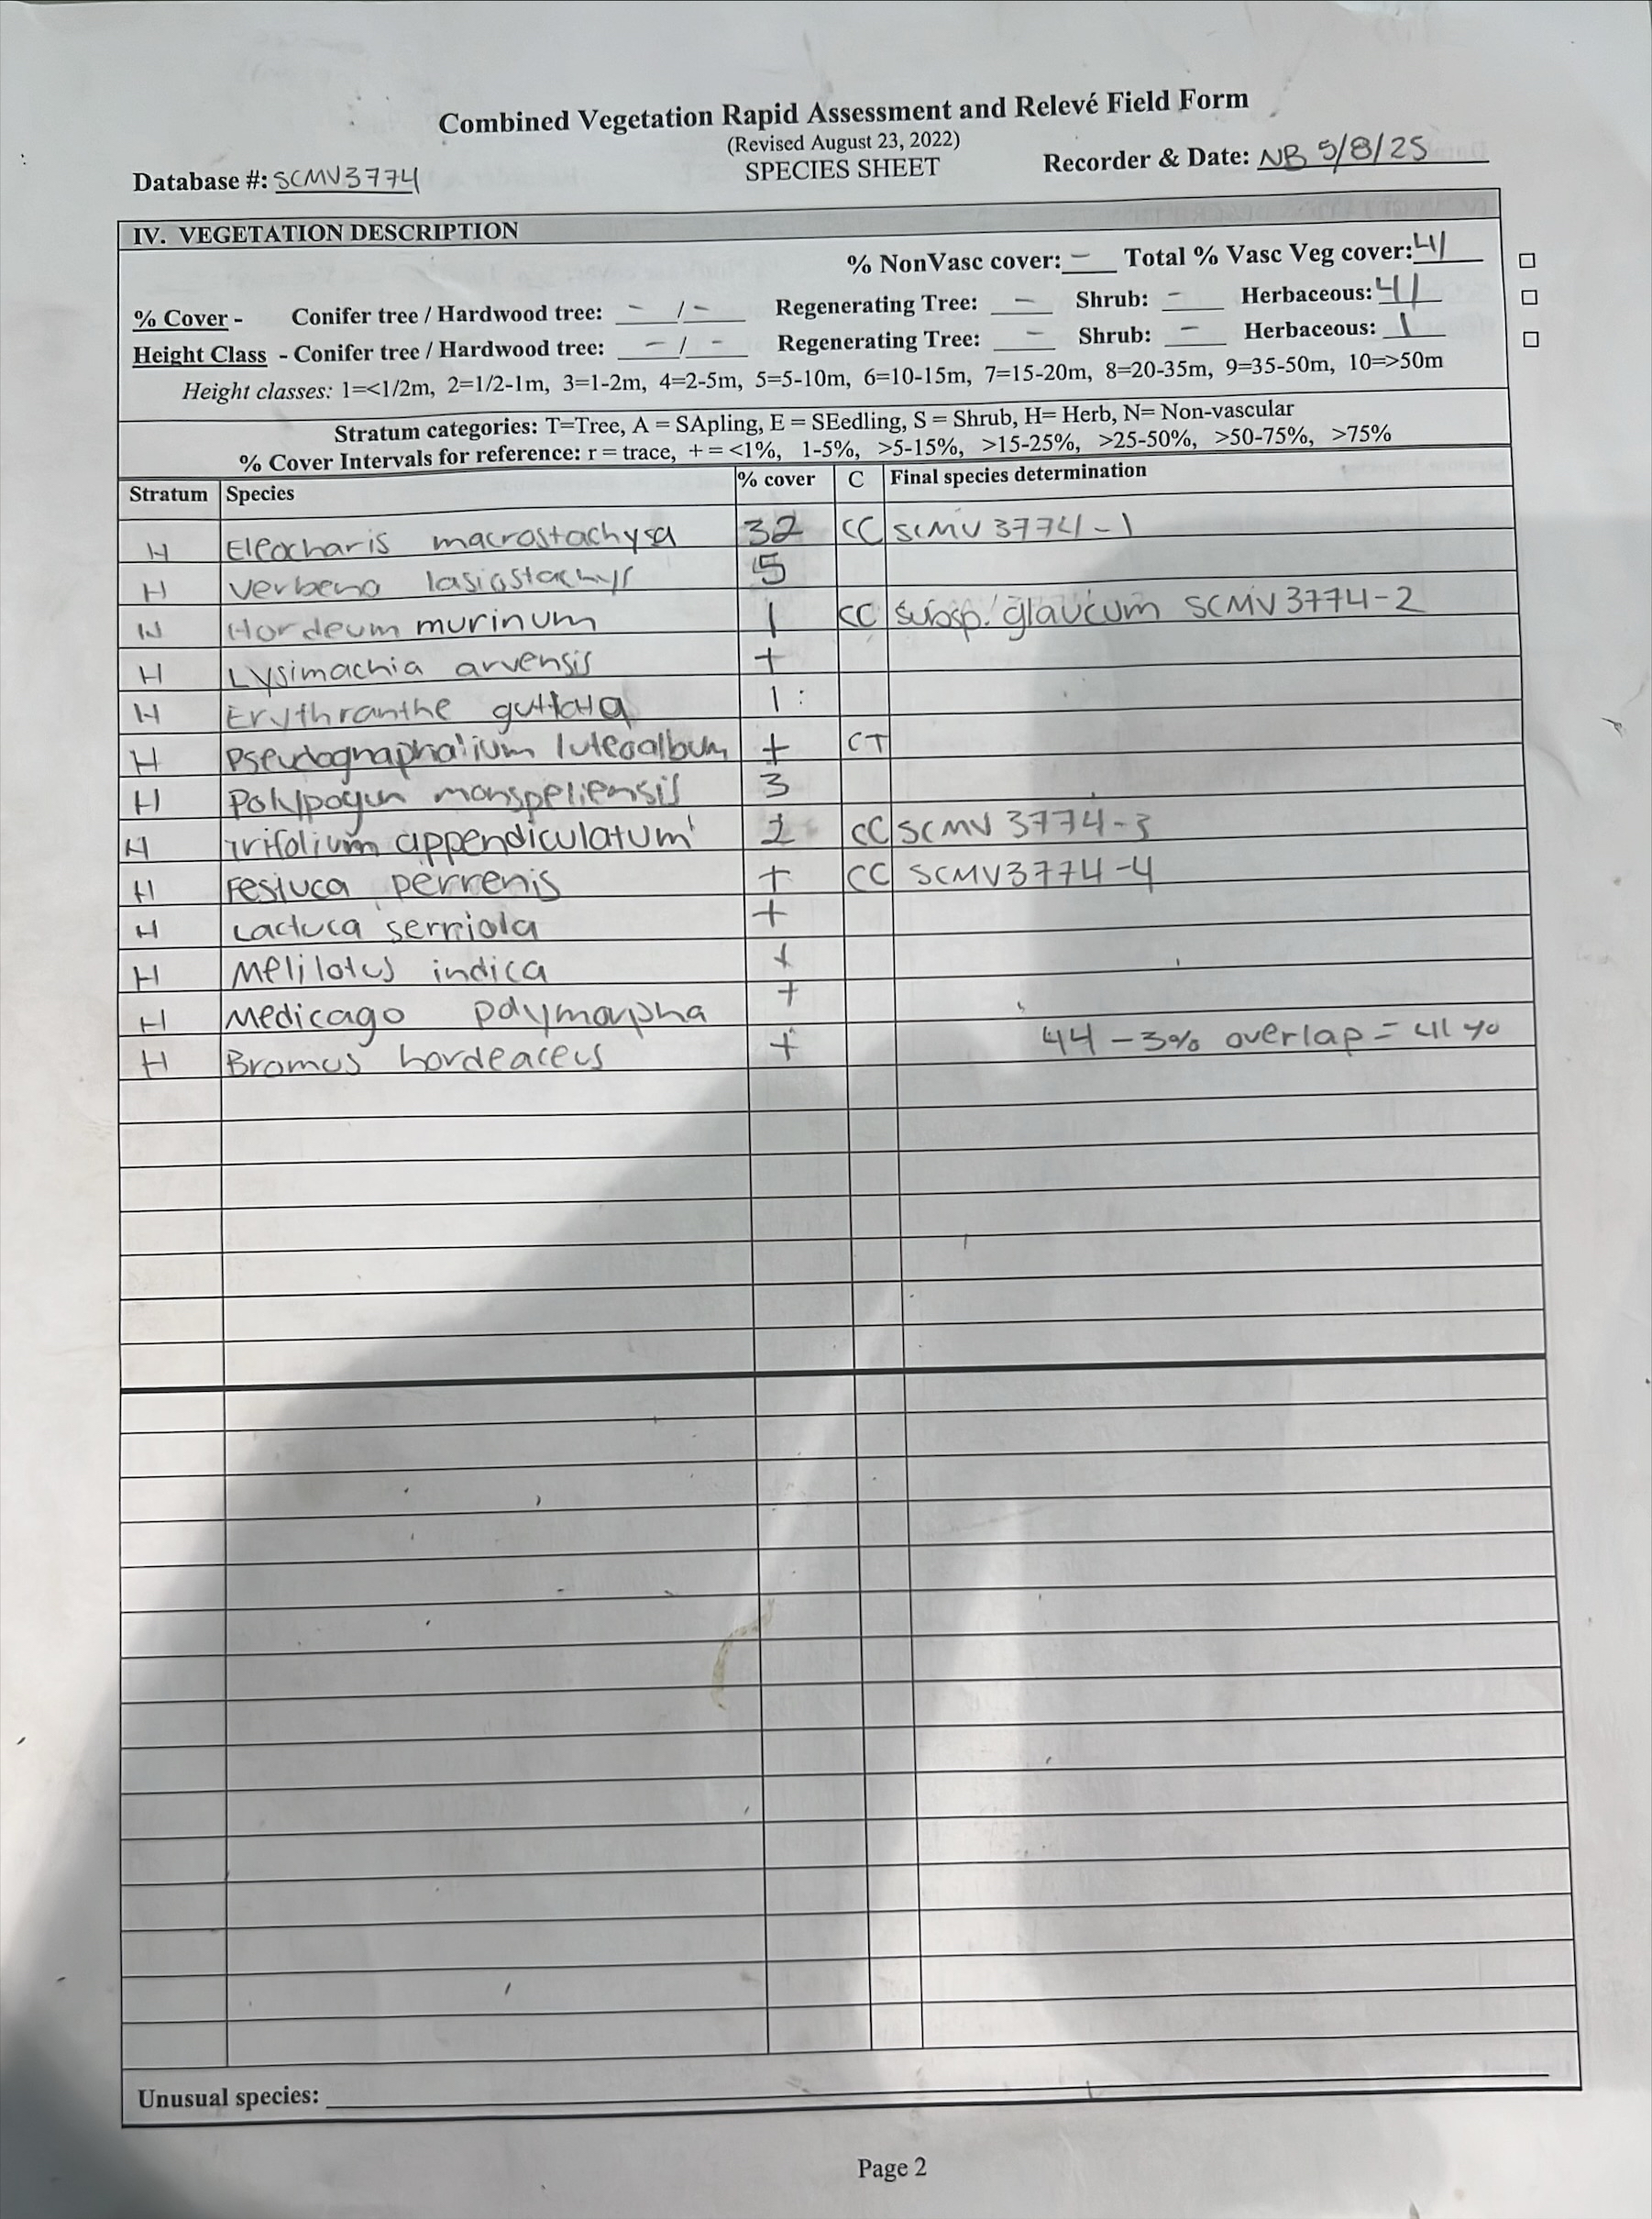 Combined Vegetation Rapid Assessment and Relevé Field Form
(Revised August 23, 2022)
Database #: SCMV3774 SPECIES SHEET Recorder & Date: NB 5/8/25
IV. VEGETATION DESCRIPTION
% NonVasc cover: - Total % Vasc Veg cover: 41
% Cover - Conifer tree / Hardwood tree: - / - Regenerating Tree: - Shrub: - Herbaceous: 41
Height Class - Conifer tree / Hardwood tree: - / - Regenerating Tree: - Shrub: - Herbaceous: 1
Height classes: 1=<1/2m, 2=1/2-1m, 3=1-2m, 4=2-5m, 5=5-10m, 6=10-15m, 7=15-20m, 8=20-35m, 9=35-50m, 10=>50m
Stratum categories: T=Tree, A = SApling, E = SEedling, S = Shrub, H= Herb, N= Non-vascular
% Cover Intervals for reference: r = trace, + = <1%, 1-5%, >5-15%, >15-25%, >25-50%, >50-75%, >75%
Stratum Species % cover C Final species determination
H Eleocharis macrostachysa 32 CC SCMV3774-1
H Verbena lasiostachys 5
H Hordeum murinum 1 CC subsp. glaucum SCMV3774-2
H Lysimachia arvensis +
H Erythranthe guttata 1
H Pseudognaphalium luteoalbum + CT
H Polypogon monspeliensis 3
H Trifolium appendiculatum 2 CC SCMV 3774-3
H Festuca perrenis + CC SCMV3774-4
H Lactuca serriola +
H Melilotus indica +
H Medicago polymorpha +
H Bromus hordeaceus + 44 - 3% overlap = 41%
Unusual species:
Page 2